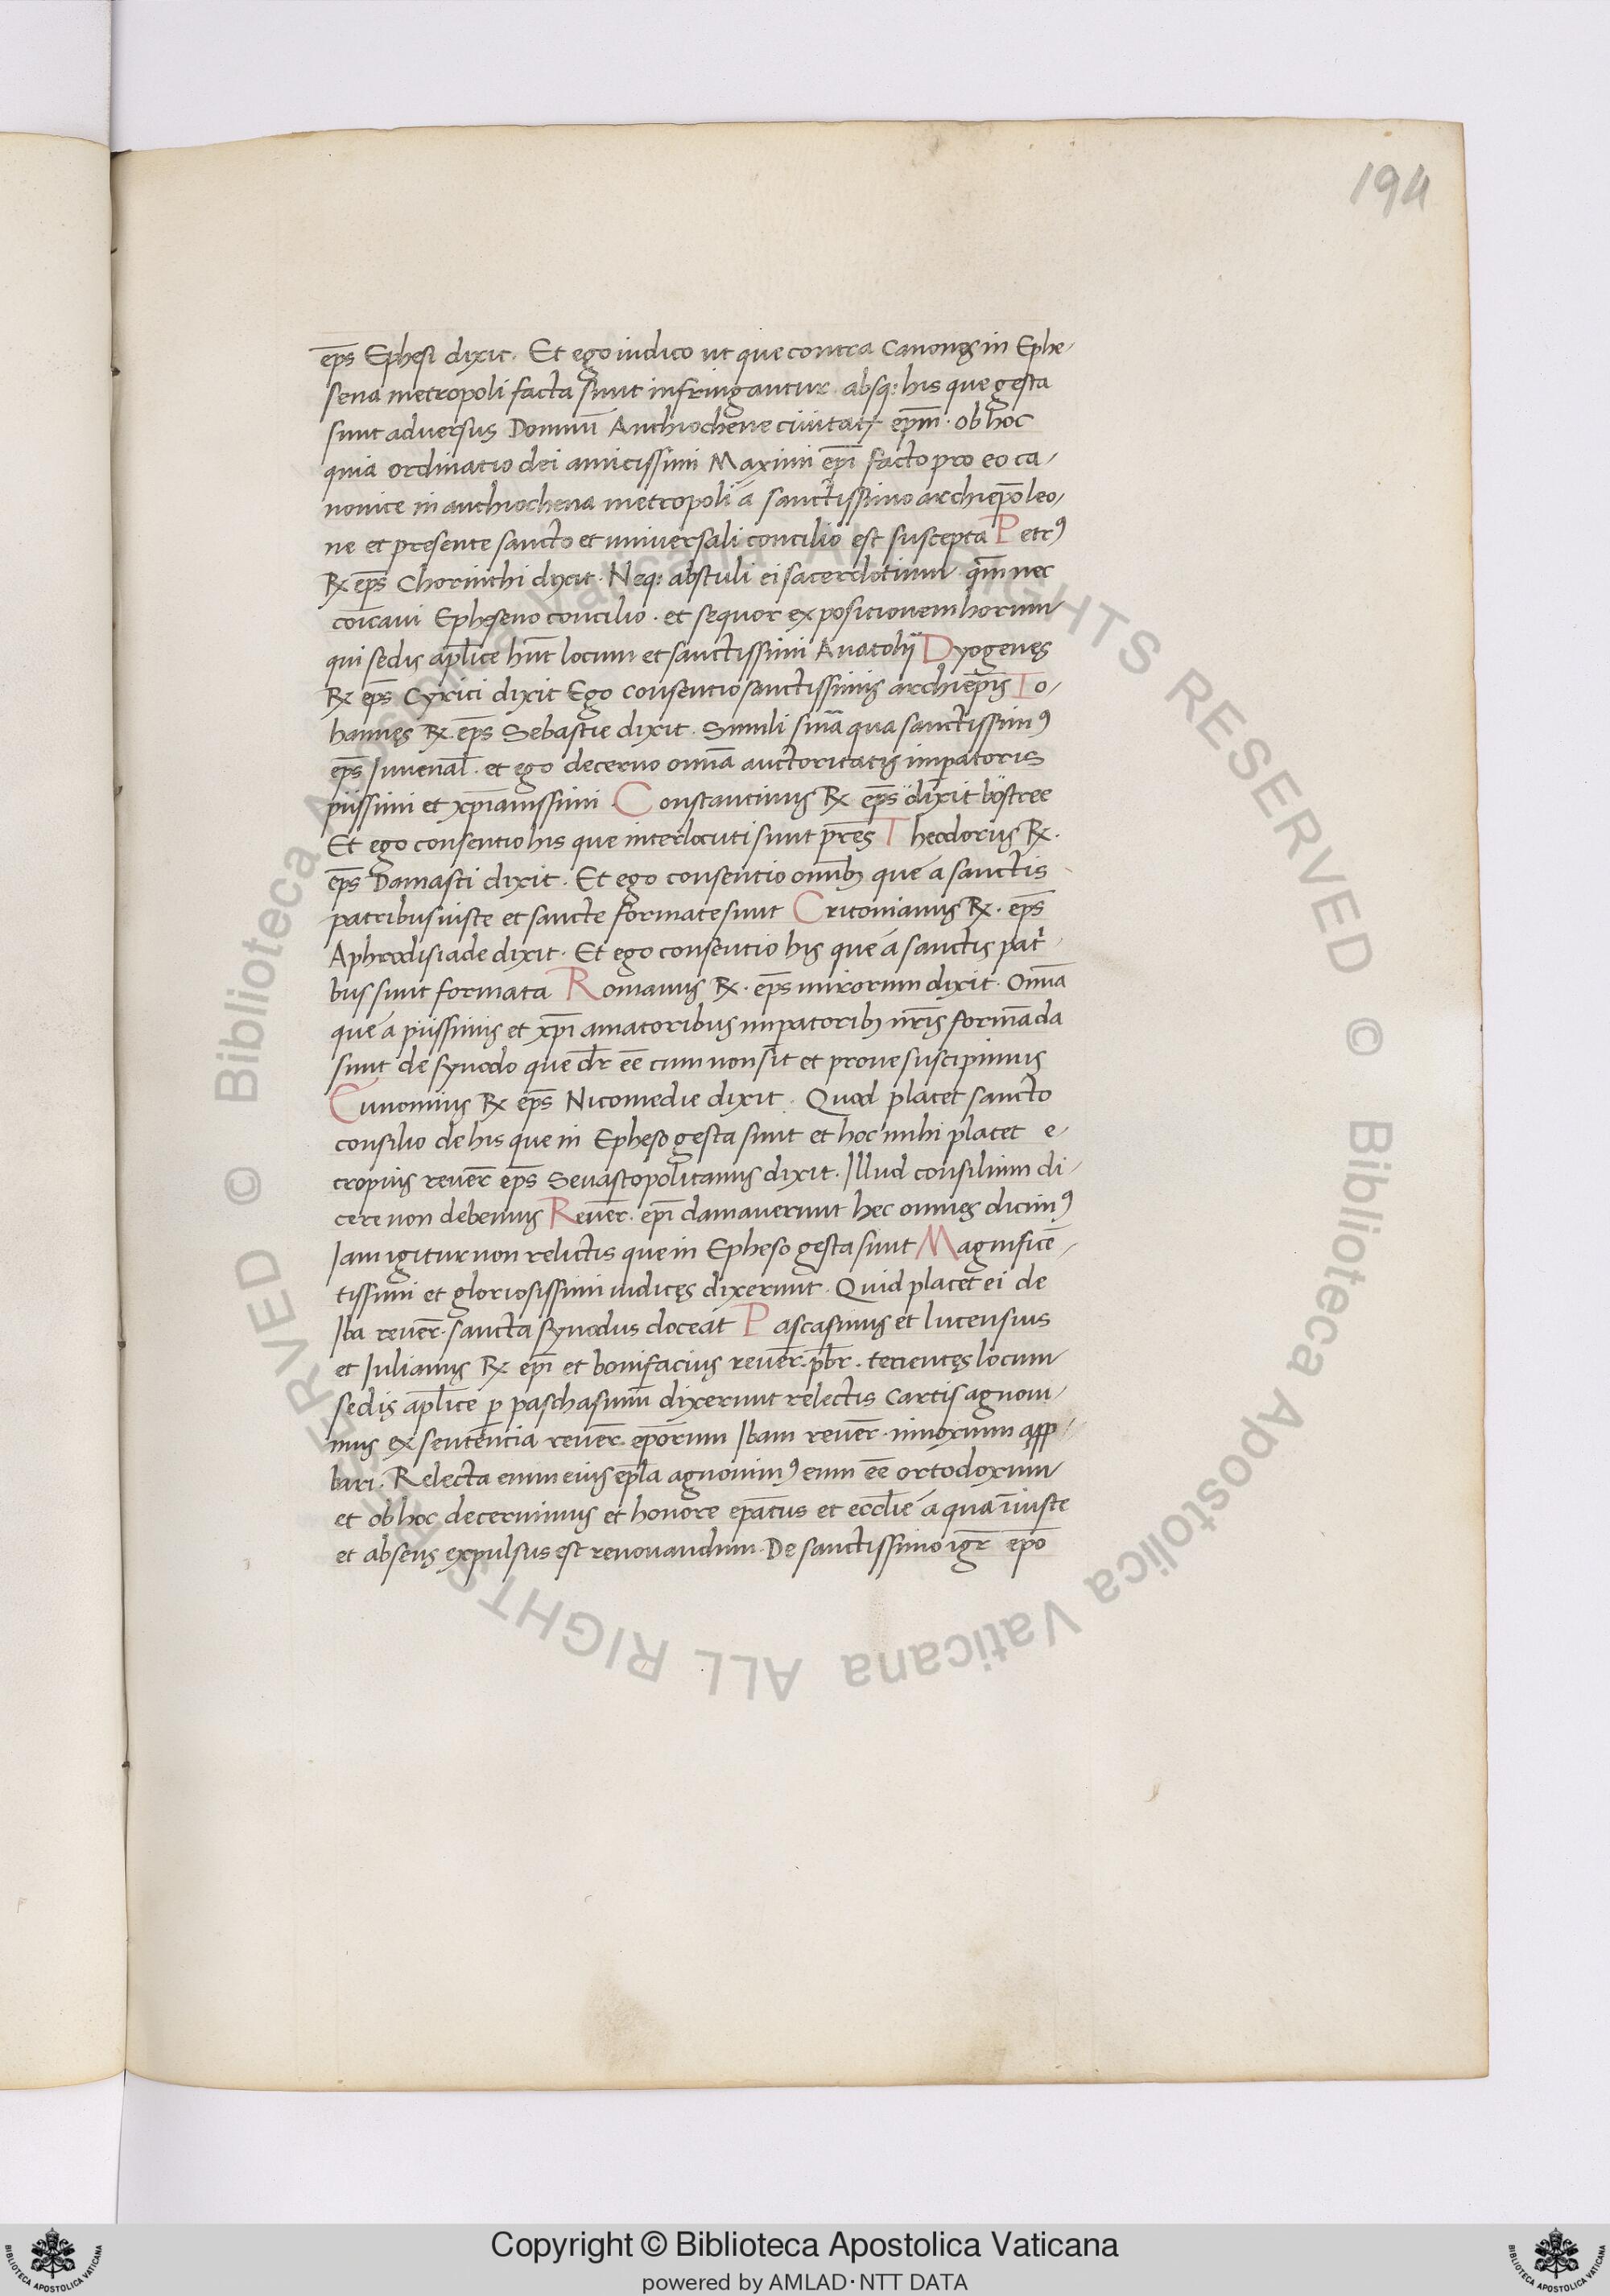 194
ep̅s Ephesi dixit. Et ego iudico ut que contra Canones in Ephe-
sena metropoli facta sunt infringantur. absq; his que gesta
sunt adversus Domnū Anthiochene civitatꝭ ep̅m. ob hoc
quia ordinatio dei amicissimi Maximi ep̅i facto pro eo ca-
nonice in anthiochena metropoli á sanctissimo archiep̅o leo-
ne et presente sancto et universali concilio est suscepta Petrꝰ
℞ ep̅s Chorinthi dixit. Neq; abstuli ei sacerdotium. qm̅ nec
coi̅cavi Epheseno concilio. et sequor expositionem horum
qui sedis apl̅ice hn̅t locum et sanctissimi Anatolij Dyogenes
℞ ep̅s Cyxici dixit Ego consentio sanctissimis archiep̅is Io-
hannes ℞. ep̅s Sebastie dixit. Simili sn̅ia qua sanctissimꝰ
ep̅s Iuvenal̅. et ego decerno om̅ia auctoritatis imp̲atoris
piissimi et xp̅ianissimi. Constantinus ℞ ep̅s "dixit "bostree
Et ego consentio his que interlocuti sunt pr̅es Theodorus ℞.
ep̅s Damasci dixit. Et ego consentio om̅ibꝫ que á sanctis
patribus iuste et sancte formate sunt Critonianus ℞. ep̅s
Aphrodisiade dixit. Et ego consentio his que á sanctis pat͛-
bus sunt formata Romanus ℞. ep̅s mirorum dixit. Om̅ia
que á piissimis et xp̅i amatoribus imp̲atoribꝫ nr̅is forma̅da
sunt de synodo que dr̅ ee̅ cum non sit et prone suscipimus
Eunomius ℞ ep̅s Nicomedie dixit. Quod placet sancto
consilio de his que in Epheso gesta sunt et hoc mihi placet e-
tropius rever̅ ep̅s Sevastopolitanus dixit. Illud consilium di-
cere non debemus Rever̅. ep̅i damaverunt hec omnes dicimꝰ
Iam igitur non relictis que in Epheso gesta sunt Magnifice̅-
tissimi et gloriosissimi iudices dixerunt. Quid placet ei de
Iba rever̅. sancta synodus doceat Pascasinus et lucensius
et Iulianus ℞ ep̅i et bonifacius rever̅. pb̅r. tenentes locum
sedis apl̅ice p̲ paschasinum dixerunt relectis Cartis agnovi-
mus ex sententia rever̅. ep̅orum Ibam rever̅. innoxium app̲-
bari. Relecta enim eius ep̅la agnovimꝰ eum ee̅ ortodoxum
et ob hoc decernimus et honore ep̅atus et eccl̅ie á qua i̅iuste
et absens expulsus est renovandum. De sanctissimo igr̅ ep̅o
© Biblioteca Apostolica Vaticana ALL RIGHTS RESERVED © Biblioteca Apostolica Vaticana ALL RIGHTS RESERVED
Copyright © Biblioteca Apostolica Vaticana
powered by AMLAD·NTT DATA
BIBLIOTECA APOSTOLICA VATICANA
BIBLIOTECA APOSTOLICA VATICANA